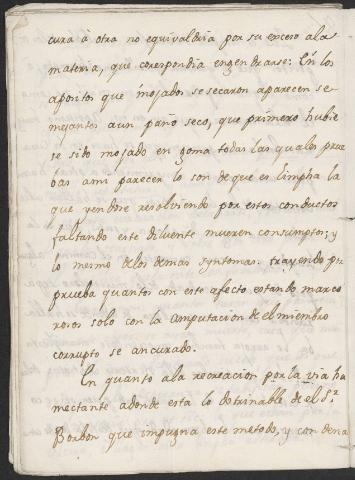 cura à otra no equivaldria por su exceso ala
materia, que corespondia engendrarse: En los
apositos que mojados se secaron aparecen se-
mejantes aun paño seco, que primero hubie
se sido mojado en goma todas las quales prue
bas ami parecer lo son de que es limpha la
que yendose resolviendo por estos conductos
faltando este diluente mueren consumptos; y
lo mesmo delos demas syntomas. trayendo pr.
prueba quantos con este afecto estando marco
rosos solo con la amputacion de el miembro
corrupto se an curado.
En quanto ala recreacion por la via hu
mectante adonde esta lo dotrinable de el Sr.
Borbon que impugna este metodo, y condena